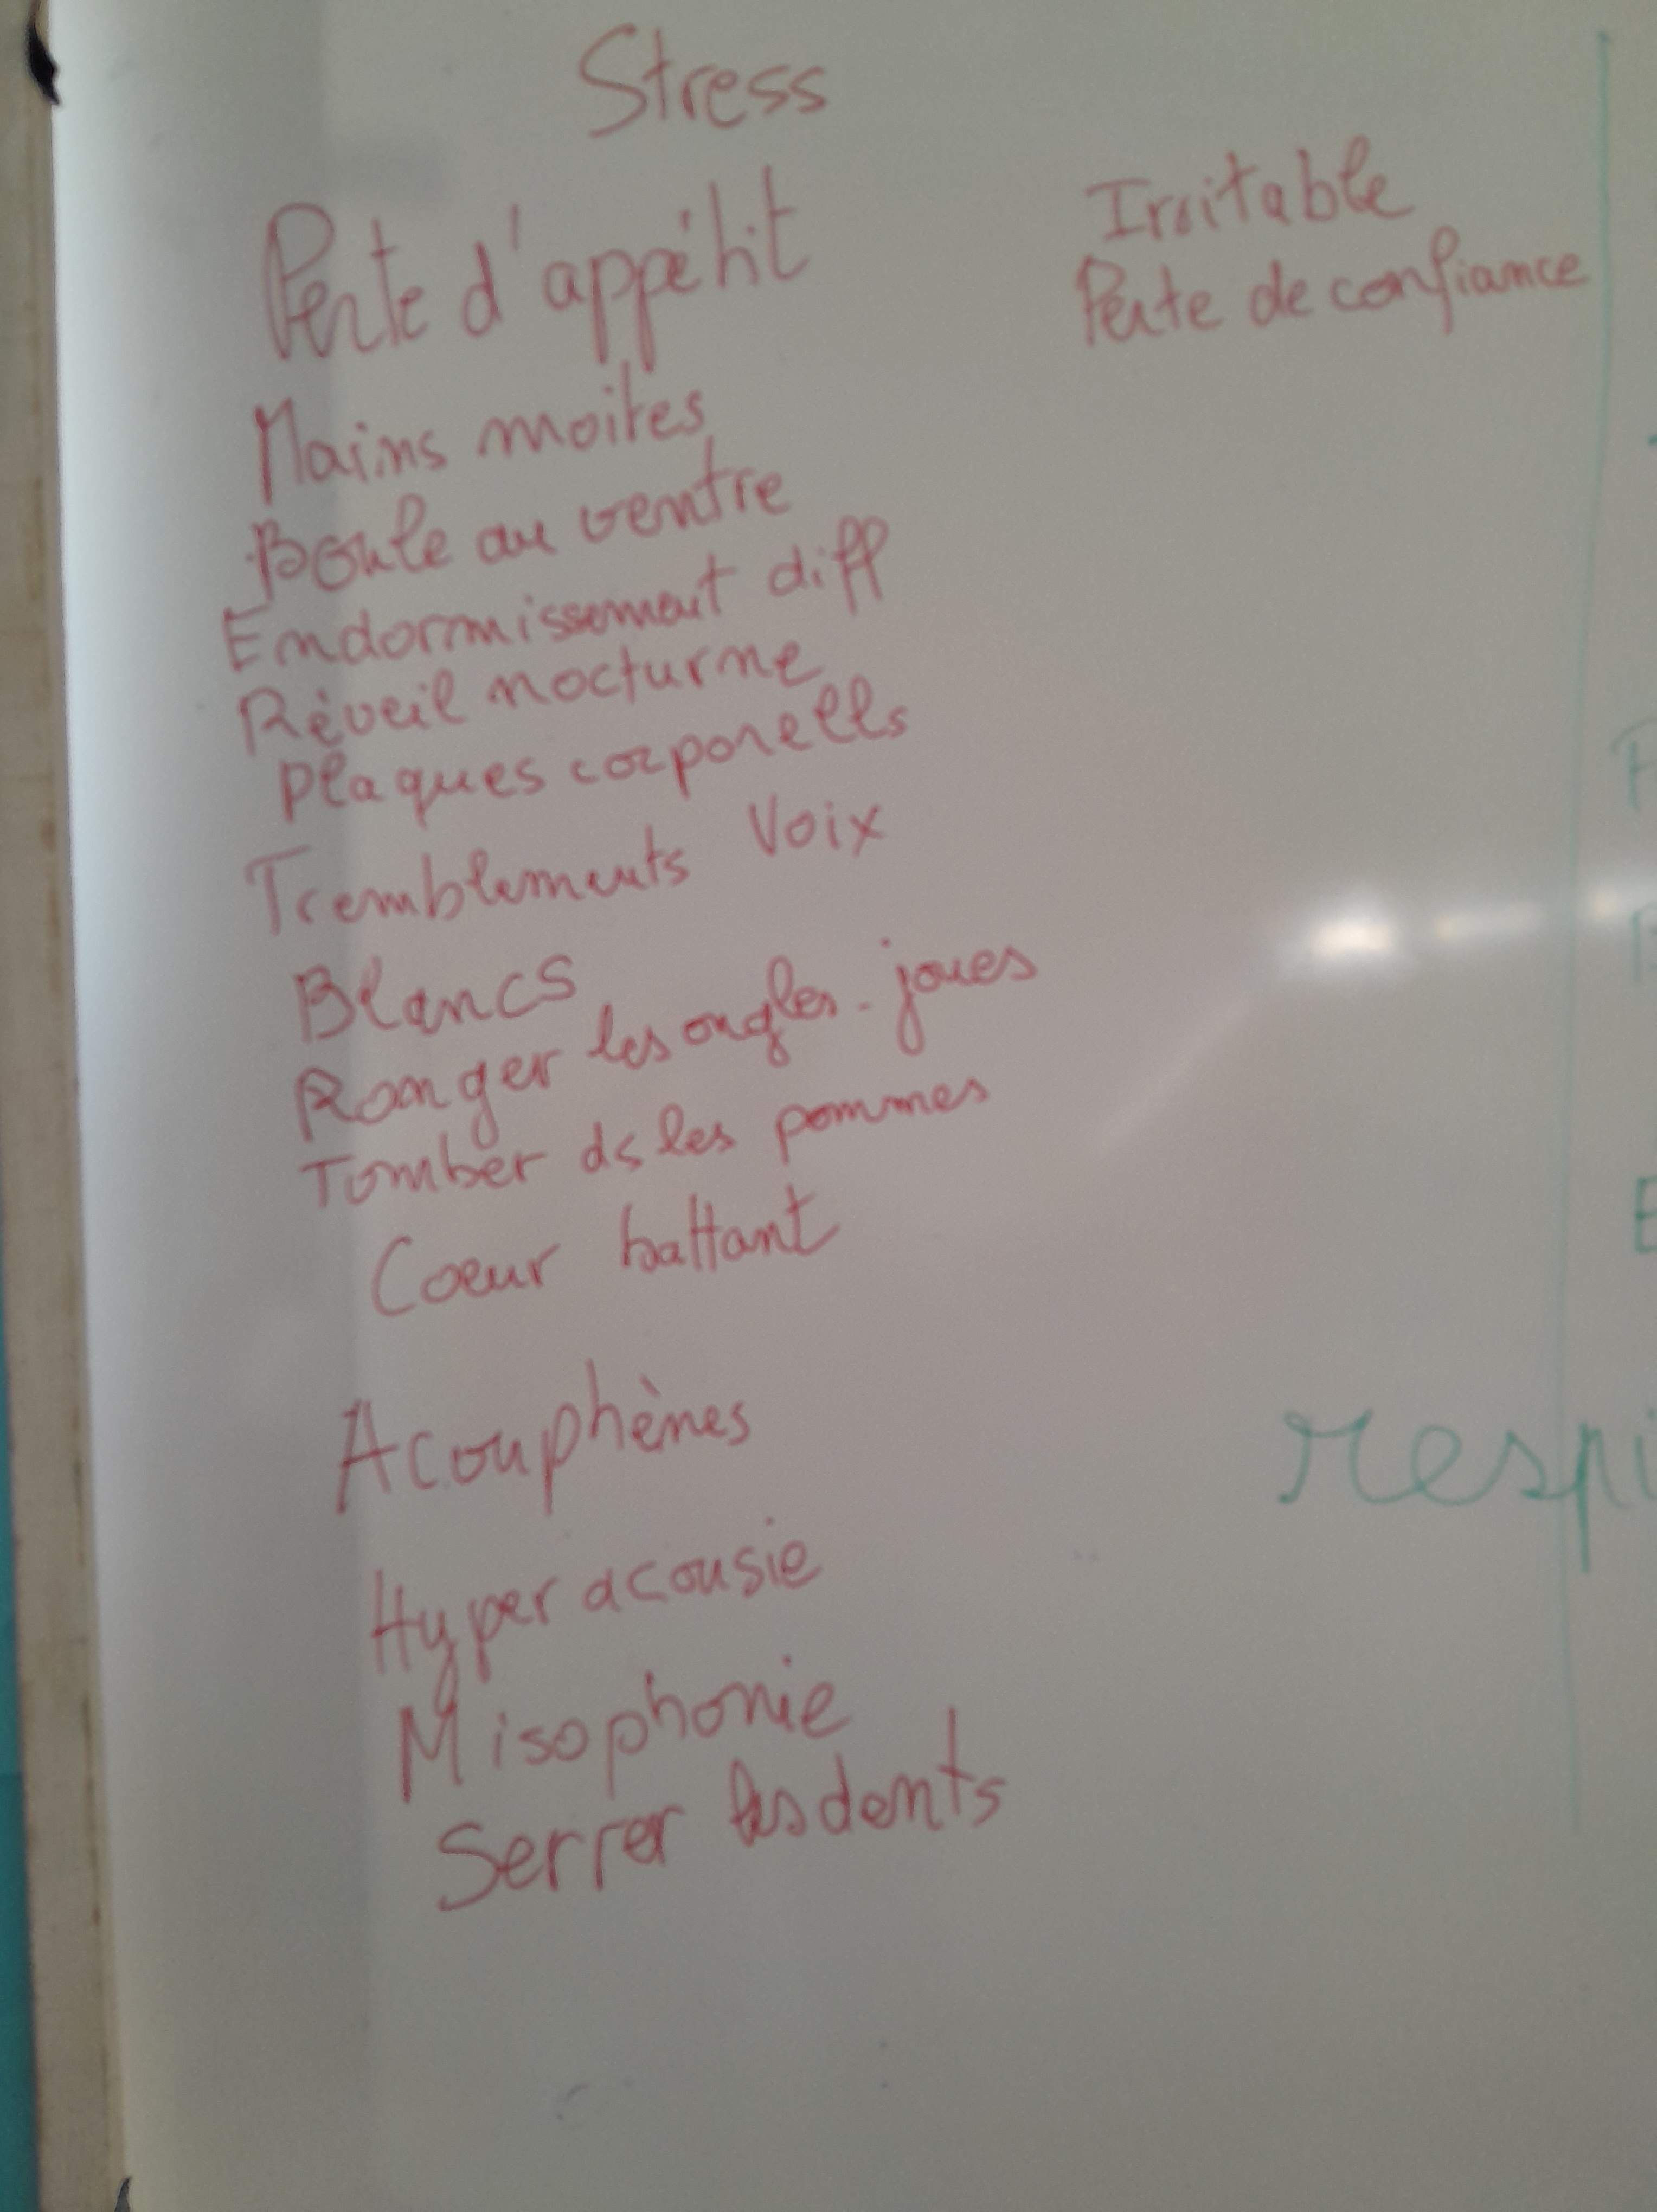 Stress
Perte d'appétit
Mains moites
Boule au ventre
Endormissement diff
Réveil nocturne
Plaques corporells
Tremblements Voix
Blancs
Ronger les ongles - joues
Tomber ds les pommes
Coeur battant
Acouphènes
Hyper acousie
Misophonie
Serrer les dents
Irritable
Perte de confiance
respi